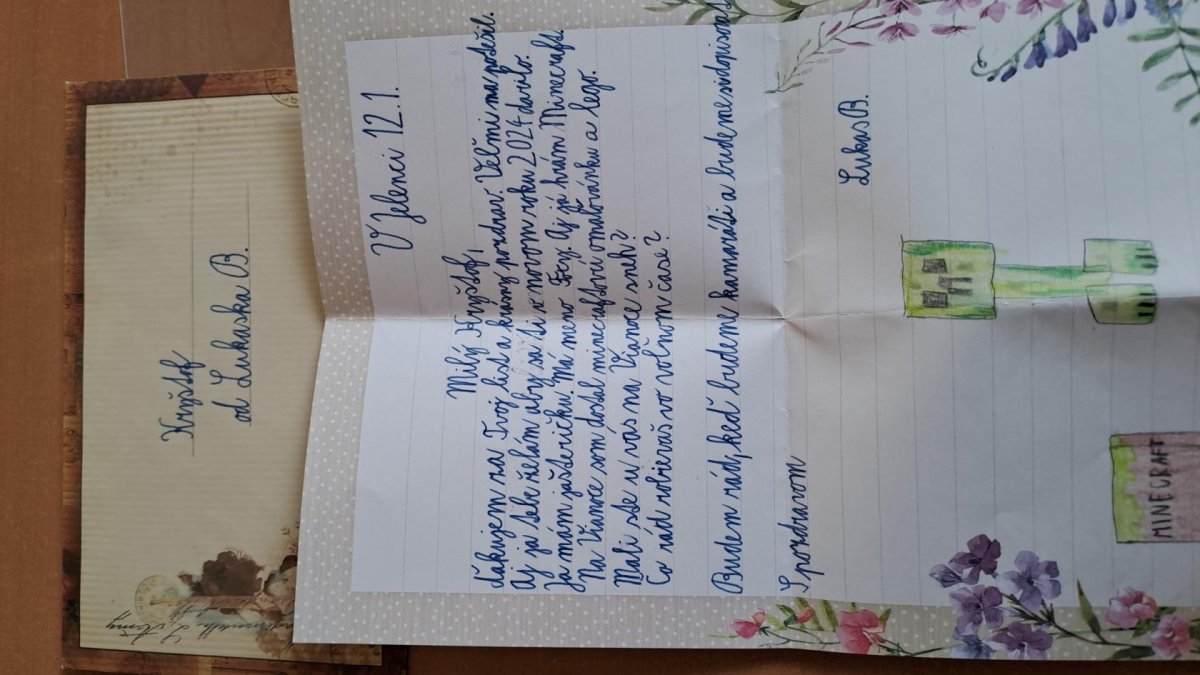 Kryštof
od Lukaska B.
V Jelenci 12.1.
Milý Kryštof,
ďakujem za Tvoj list a krásny pozdrav. Veľmi ma potešil.
Aj ja tebe želám aby sa ti v novom roku 2024 darilo.
Ja mám jašteričku. Má meno Foxy. Aj ja hrám Minecraft.
Na Vianoce som dostal minecraftovu omaľovánku a lego.
Mali ste u vás na Vianoce sneh?
Čo rád robievaš vo voľnom čase?
Budem rád, keď budeme kamaráti a budeme si dopisovať
S pozdravom
Lukas B.
MINECRAFT